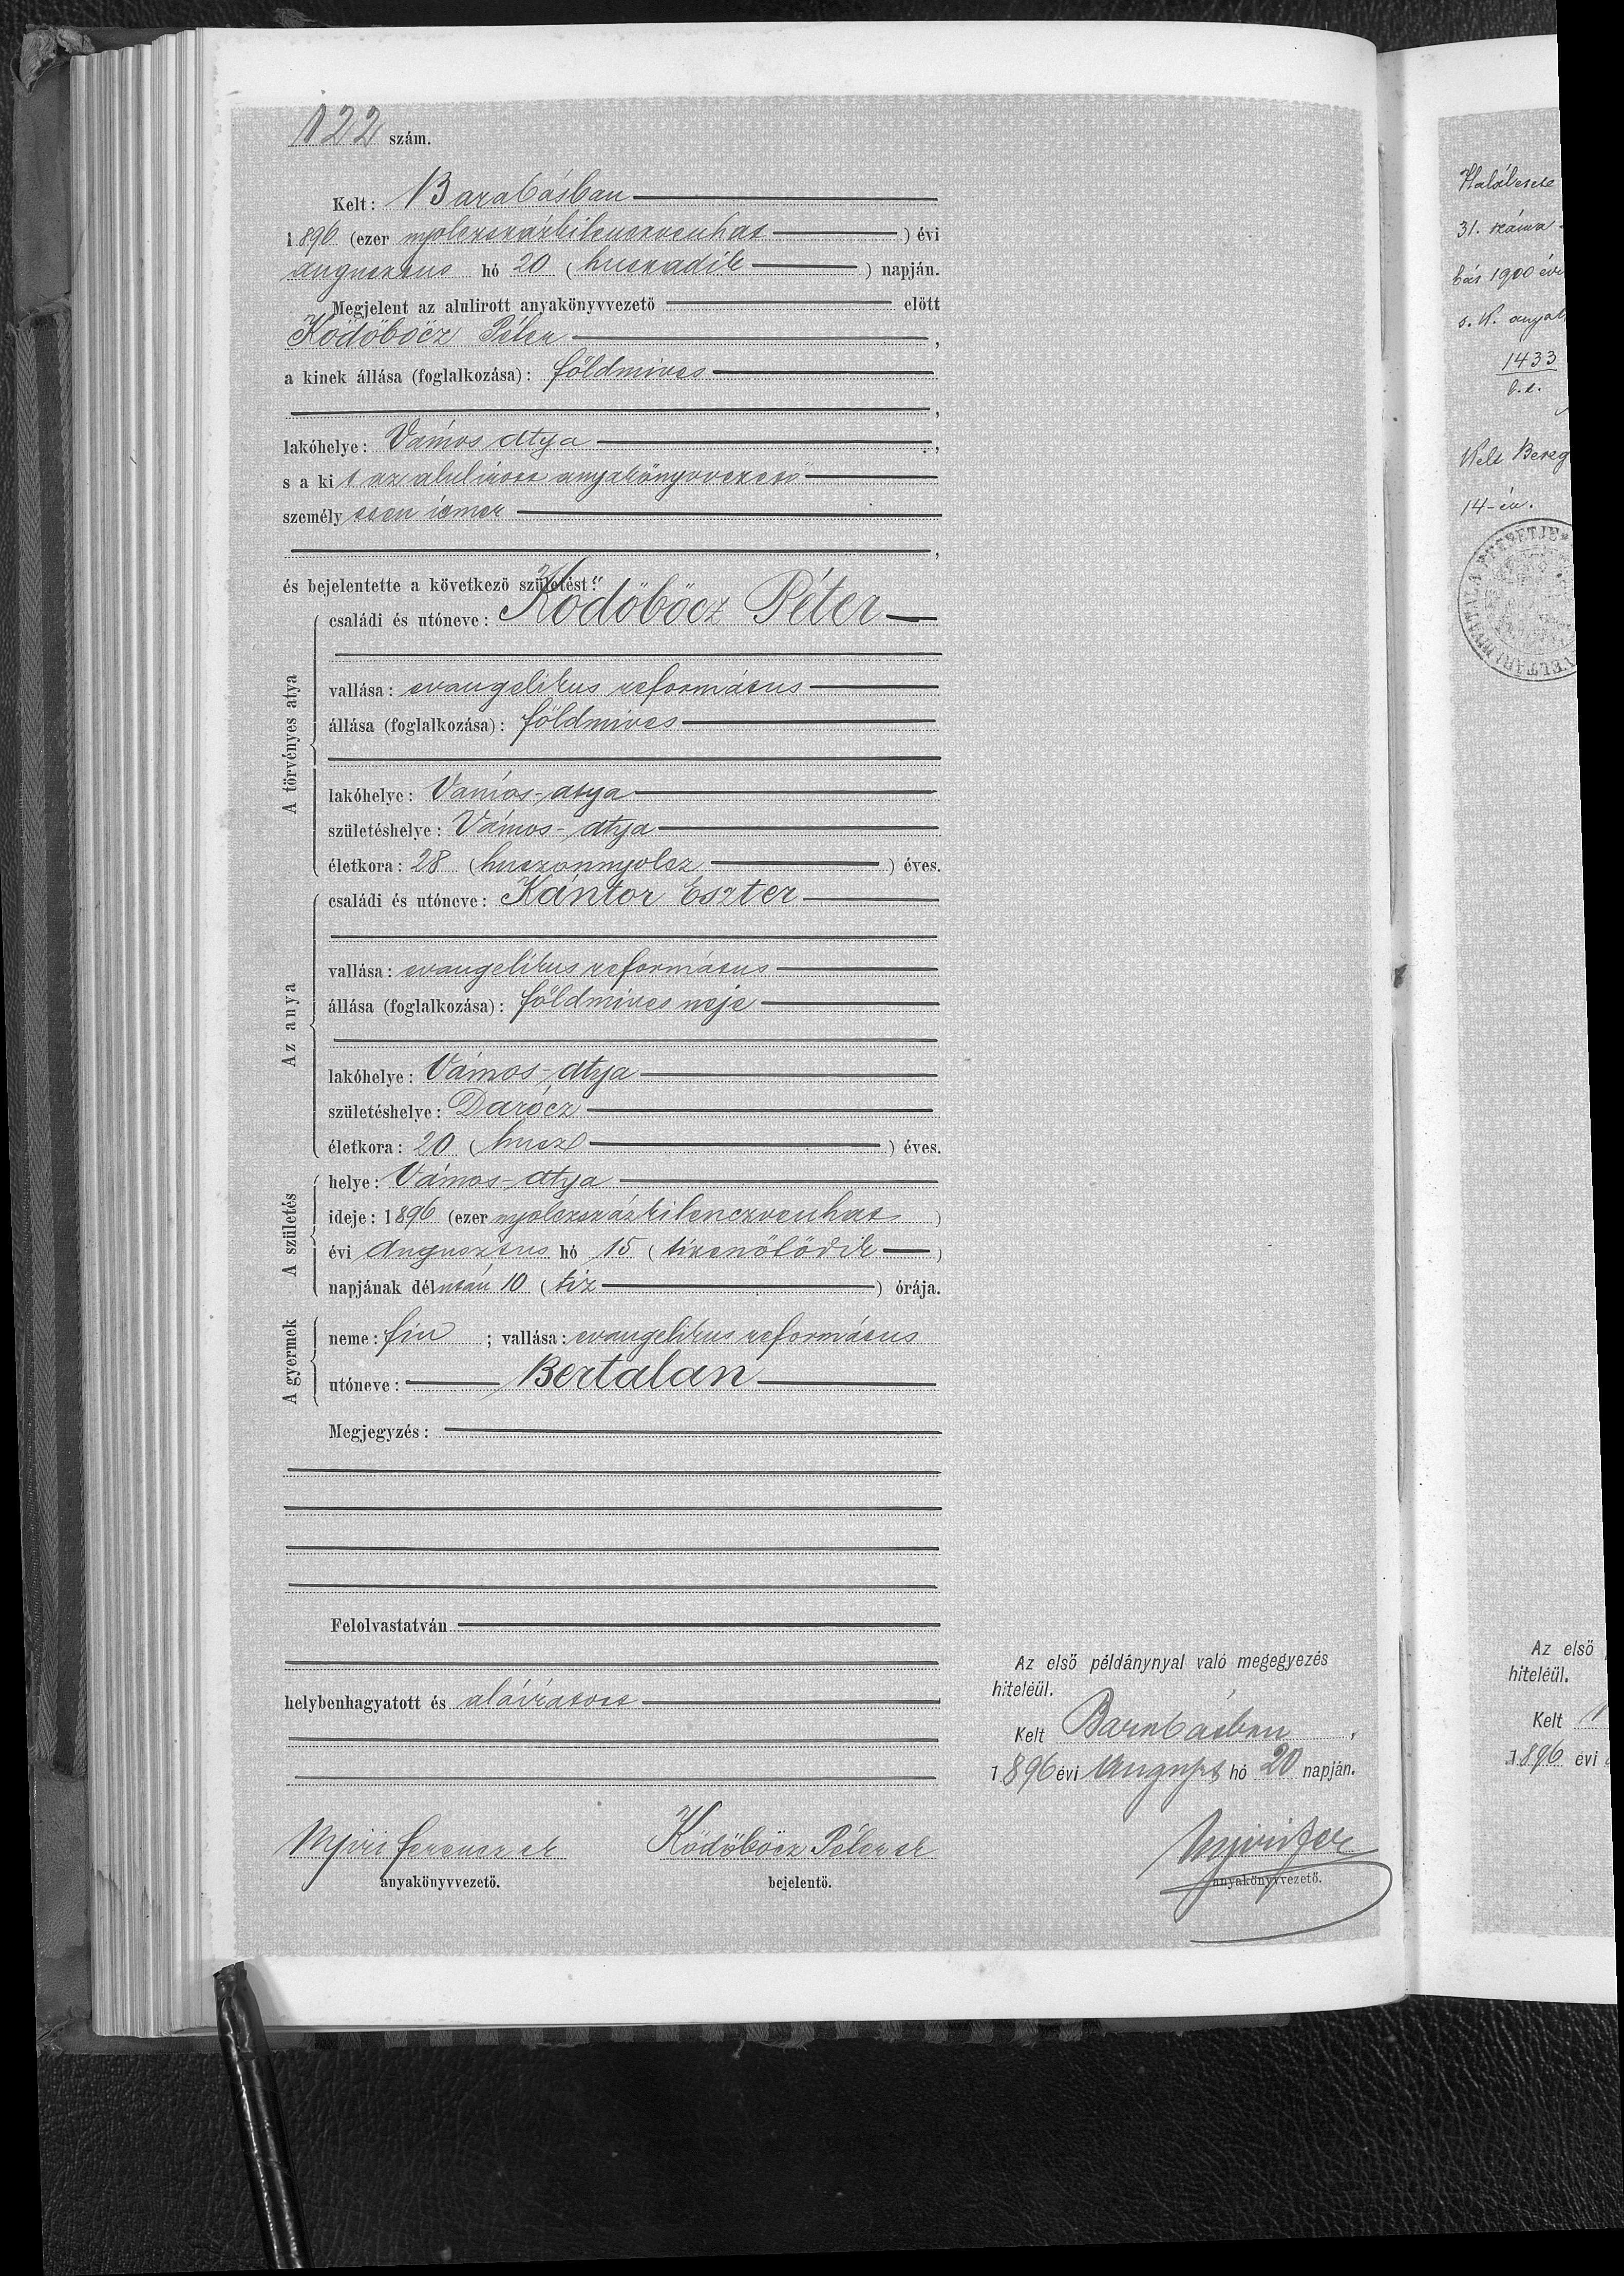 122 szám.
Kelt: Barabásban
1896 (ezer nyolczszázkilenczvenhat) évi
augusztus hó 20 (huszadik) napján.
Megjelent az alulirott anyakönyvvezető előtt
Ködöböcz Péter,
a kinek állása (foglalkozása): földmives
,
lakóhelye: Vámos atya,
s a kit az alulirott anyakönyvvezető
személyesen ismer
,
és bejelentette a következő születést:
A törvényes atya
családi és utóneve: Ködöböcz Péter
vallása: evangelikus református
állása (foglalkozása): földmives
lakóhelye: Vámos-atya
születéshelye: Vámos-atya
életkora: 28 (huszonnyolcz) éves.
Az anya
családi és utóneve: Kántor Eszter
vallása: evangelikus református
állása (foglalkozása): földmives neje
lakóhelye: Vámos-atya
születéshelye: Darócz
életkora: 20 (husz) éves.
A születés
helye: Vámos-atya
ideje: 1896 (ezer nyolczszázkilenczvenhat)
évi Augusztus hó 15 (tizenötödik)
napjának délután 10 (tiz) órája.
A gyermek
neme: fiu; vallása: evangelikus református
utóneve: Bertalan
Megjegyzés:
Felolvastatván
helybenhagyatott és aláiratott
Nyiri Ferencz sk
anyakönyvvezető.
Ködöböcz Péter sk
bejelentő.
Az első példánynyal való megegyezés
hiteléül.
Kelt Barabásban,
1896 évi August hó 20 napján.
Nyiri Fer
anyakönyvvezető.
Halálesete
31. száma
bás 1900 évi
1433
Kelt Bereg
14-én.
Az első
hiteléül.
Kelt
1896 évi